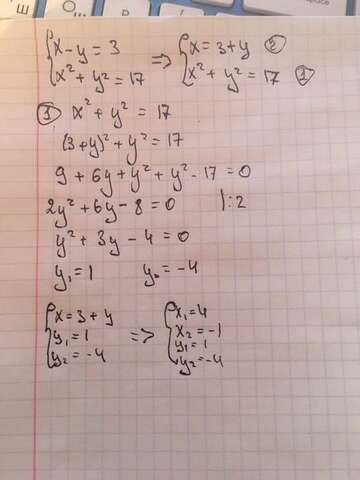 {x-y=3 => {x=3+y ②
{x²+y²=17 {x²+y²=17 ①
① x²+y²=17
(3+y)²+y²=17
9+6y+y²+y²-17=0
2y²+6y-8=0 |:2
y²+3y-4=0
y₁=1 y₂=-4
{x=3+y => {x₁=4
y₁=1 x₂=-1
y₂=-4 y₁=1
y₂=-4